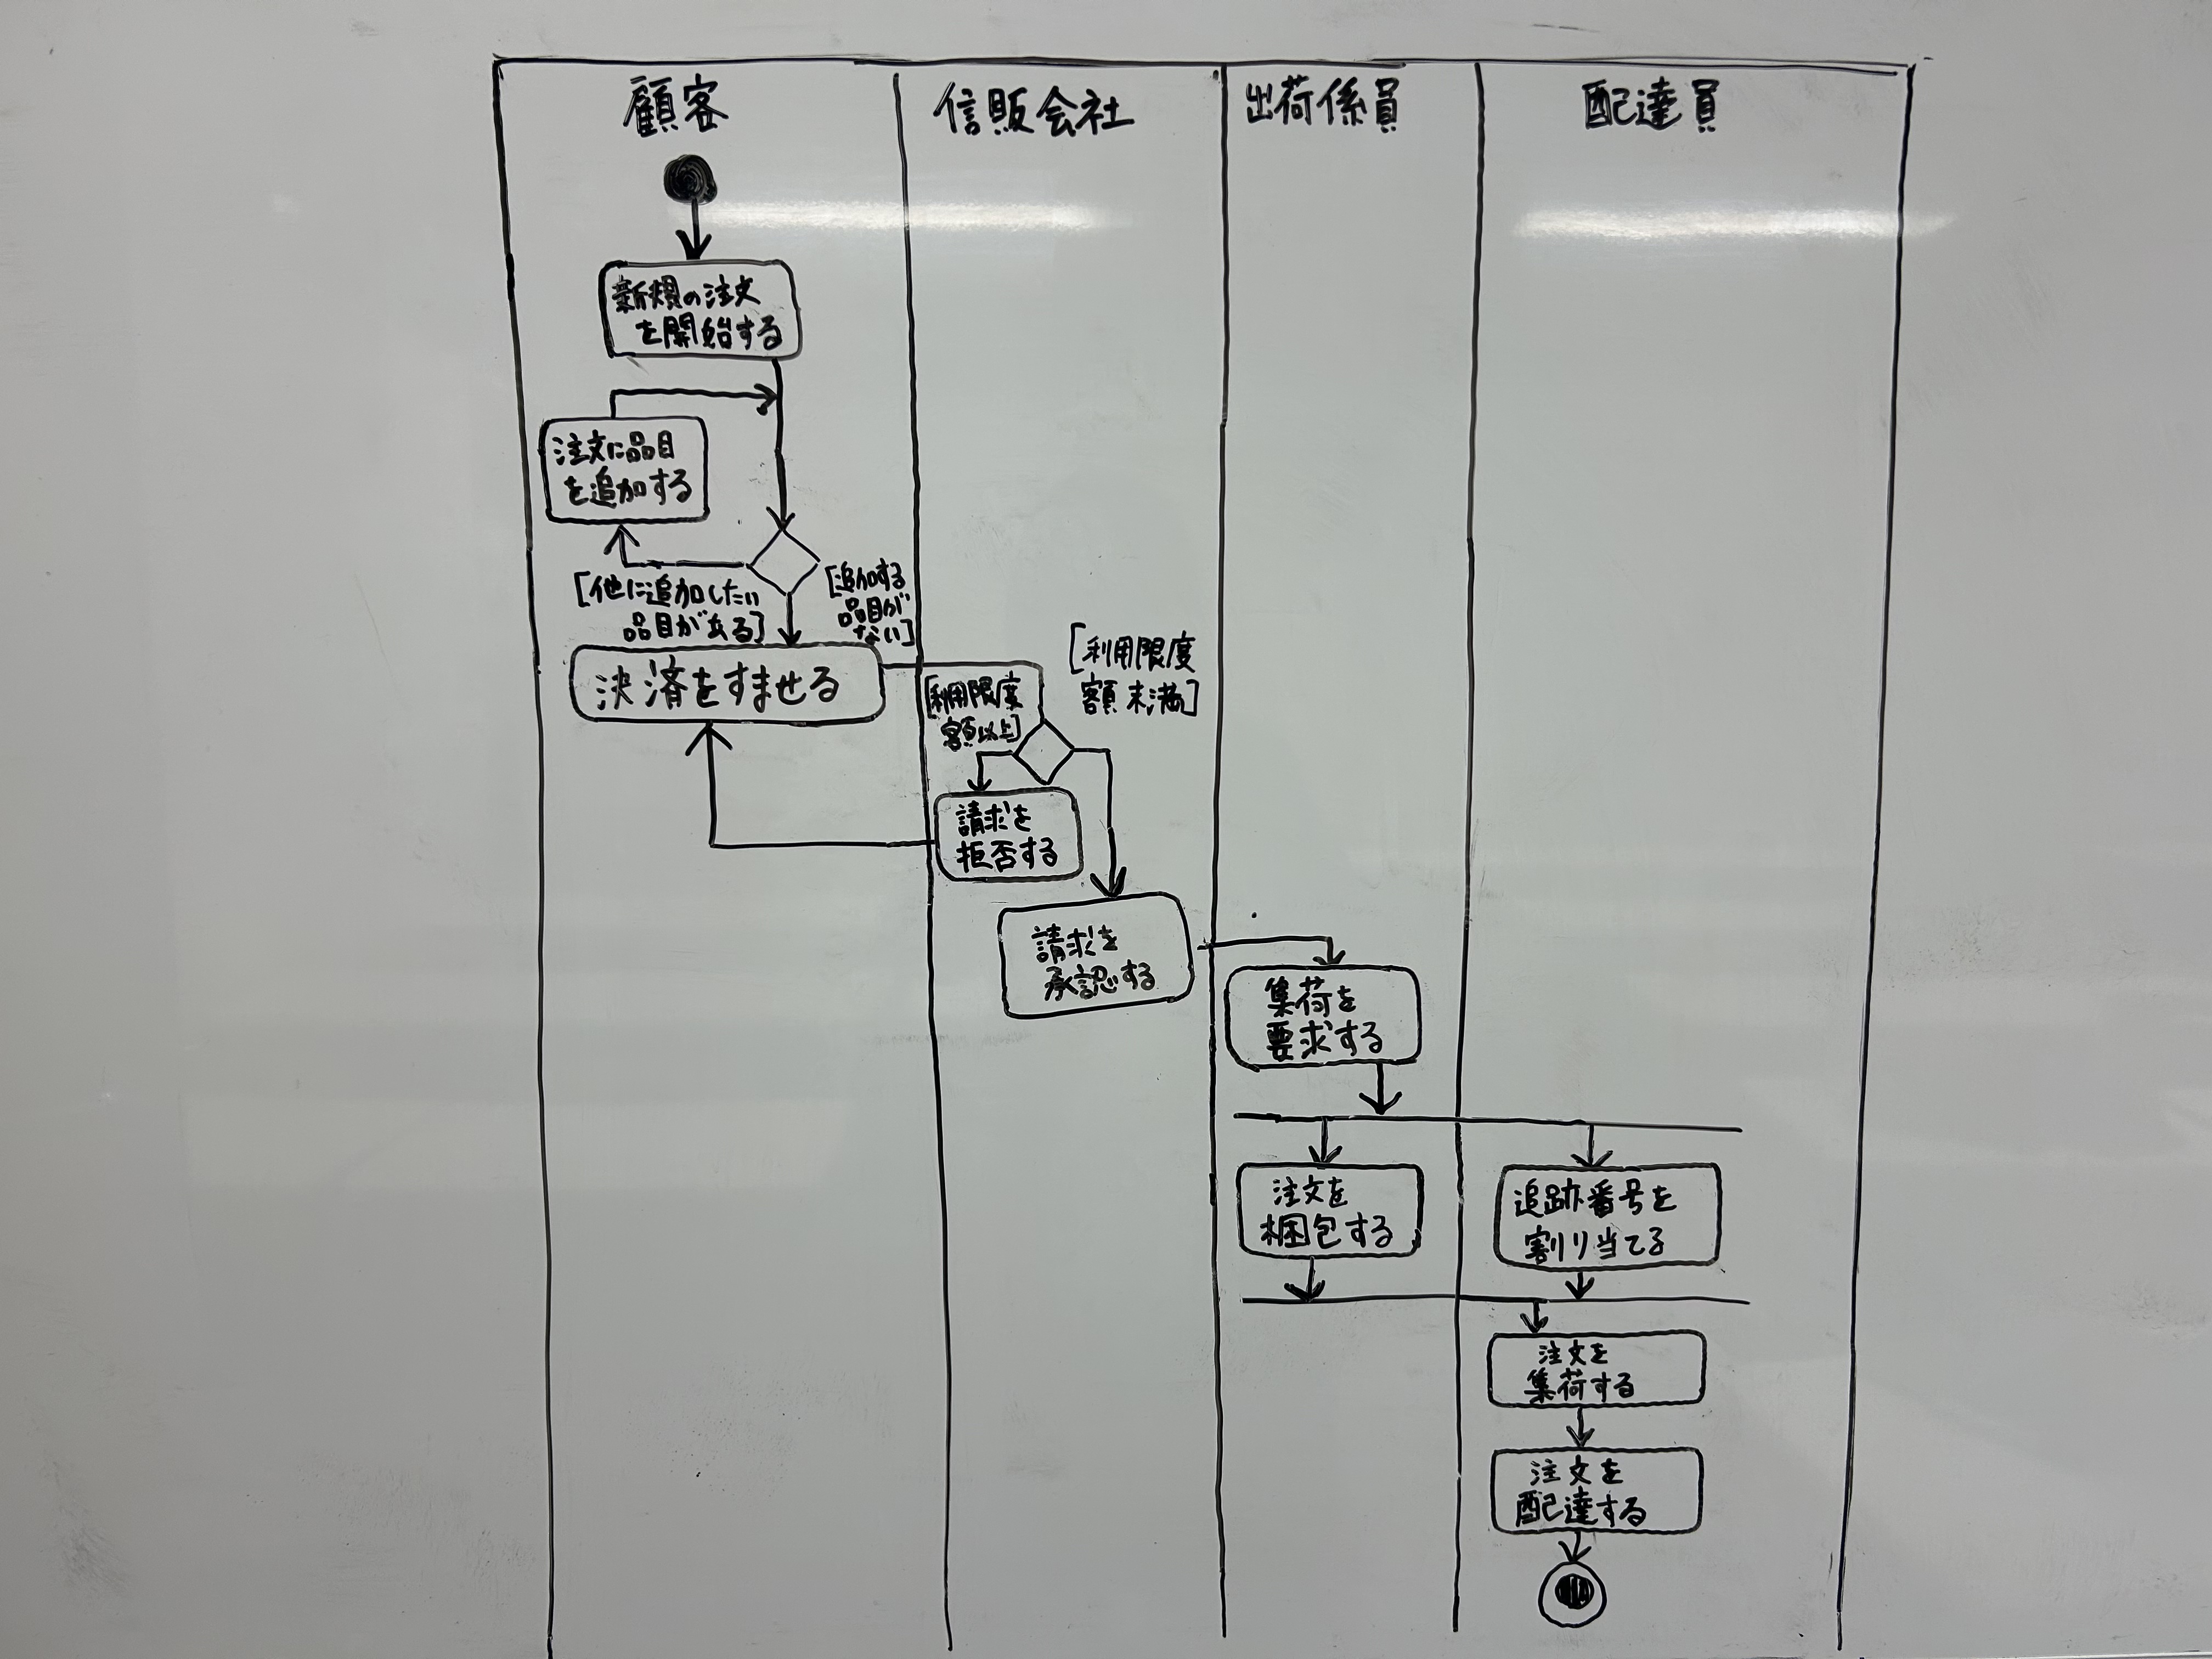 顧客
信販会社
出荷係員
配達員
新規の注文
を開始する
注文に品目
を追加する
[他に追加したい
品目がある]
[追加する
品目が
ない]
決済をすませる
[利用限度
額以上]
[利用限度
額未満]
請求を
拒否する
請求を
承認する
集荷を
要求する
注文を
梱包する
追跡番号を
割り当てる
注文を
集荷する
注文を
配達する